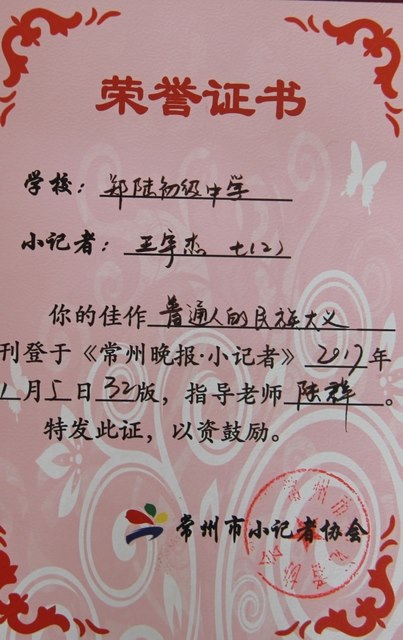 荣誉证书
学校：郑陆初级中学
小记者：王宇杰 七（2）
你的佳作普通人的民族大义
刊登于《常州晚报·小记者》2017年
月5日32版，指导老师陆群。
特发此证，以资鼓励。
常州市小记者协会